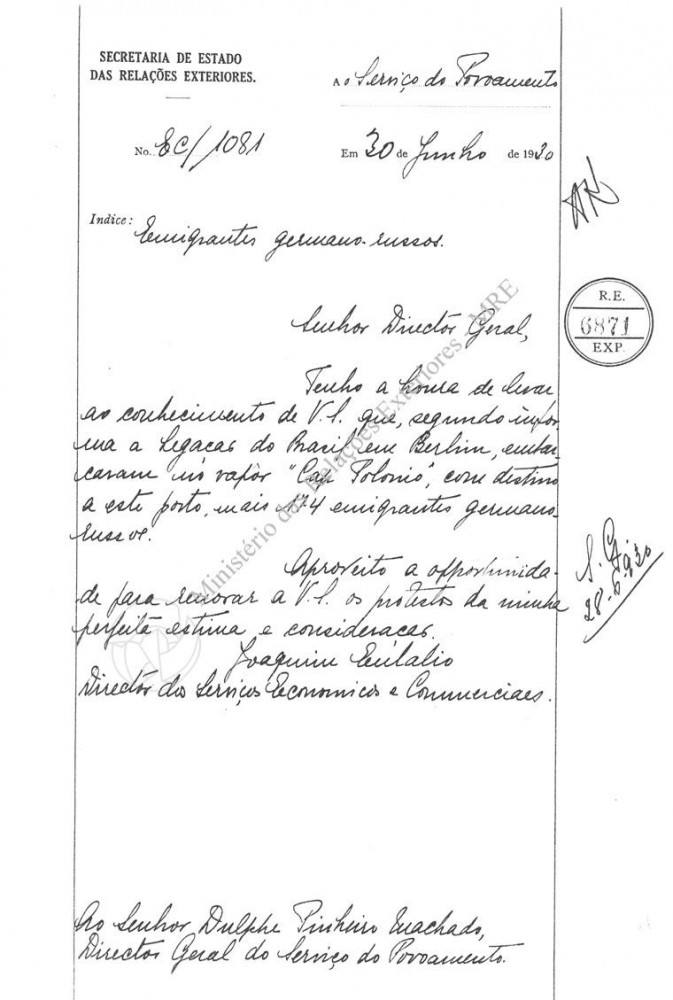 SECRETARIA DE ESTADO
DAS RELAÇÕES EXTERIORES.
Ao Serviço do Povoamento
No. EC/1081
Em 30 de Junho de 1930
Indice: Emigrantes germano-russos.
R.E.
6871
EXP.
Senhor Director Geral,
Tenho a honra de levar
ao conhecimento de V.S. que, segundo infor
ma a Legacao do Brasil em Berlim, embar
caram no vapor "Cap Polonio", com destino
a este porto, mais 174 emigrantes germano-
russos.
Aproveito a opportunida-
de para renovar a V.S. os protestos da minha
perfeita estima e consideracao.
Joaquim Eulalio
Director dos Serviços Economicos e Commerciaes.
28-6-930
Ao Senhor Dulphe Pinheiro Machado,
Director Geral do Serviço do Povoamento.
Ministério das Relações Exteriores - MRE